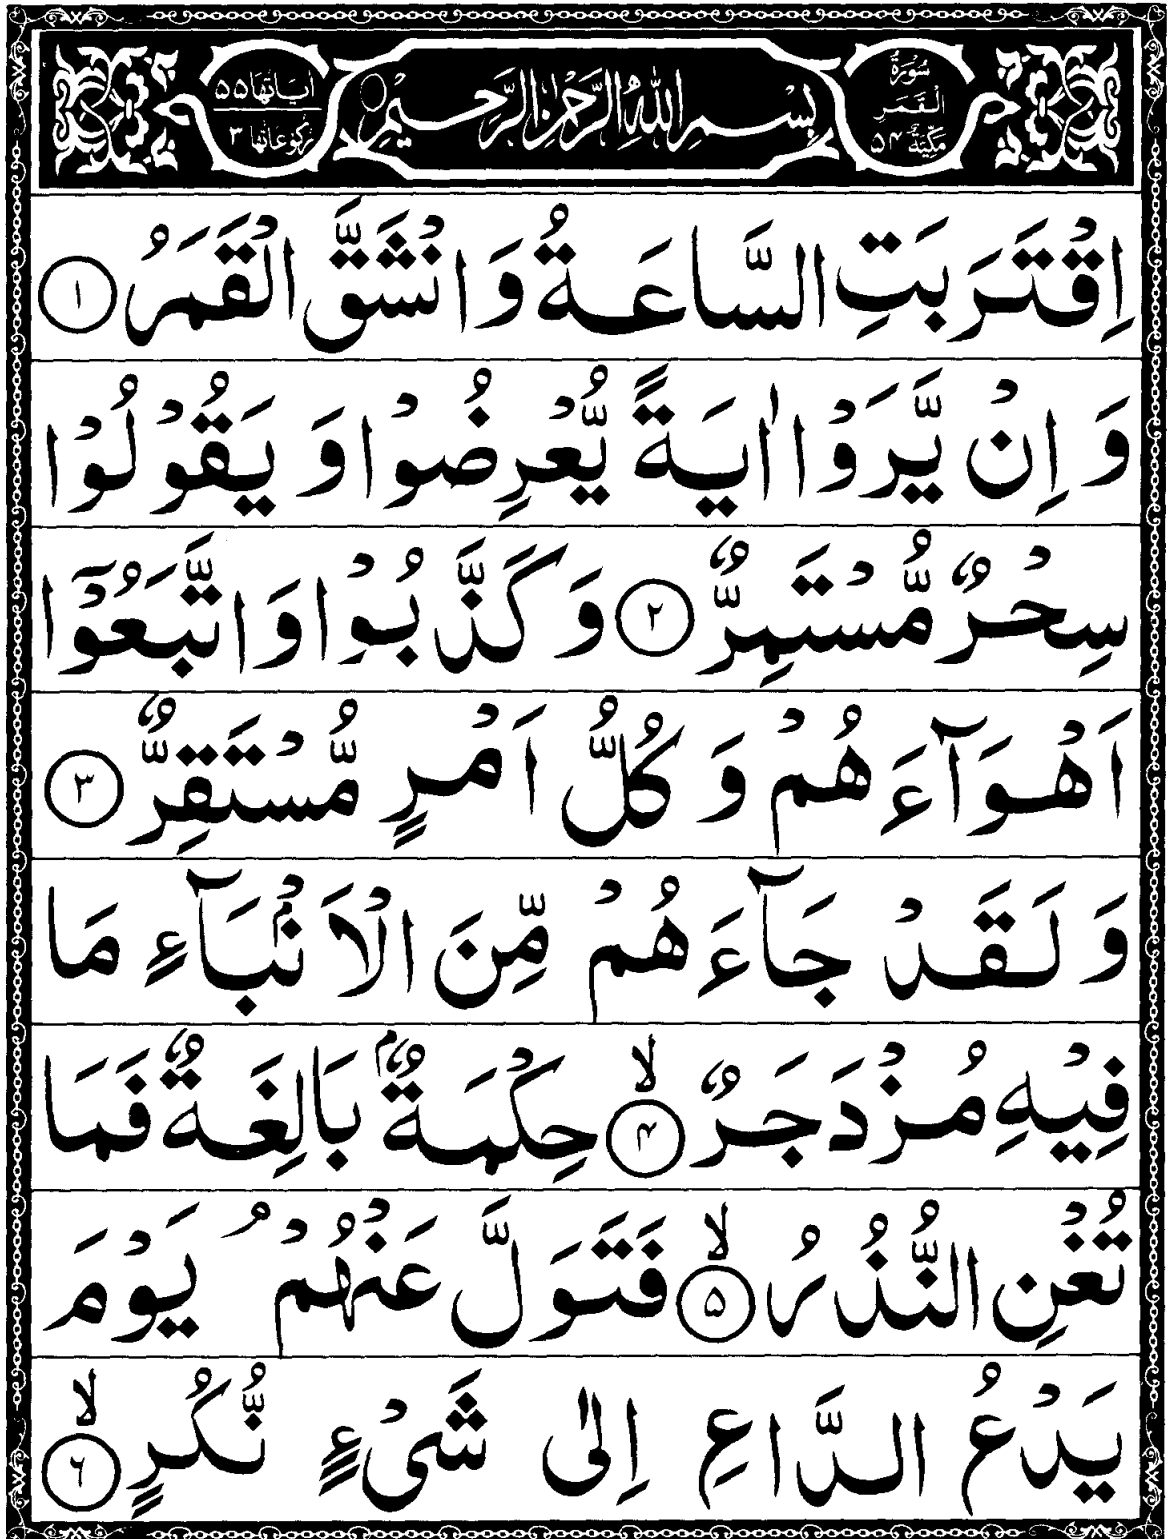 سُوْرَةُ الْقَمَرِ مَكِّيَّةٌ ٥٤
بِسْمِ اللهِ الرَّحْمٰنِ الرَّحِيْمِ
اٰيَاتُهَا ٥٥ رُكُوْعَاتُهَا ٣
اِقْتَرَبَتِ السَّاعَةُ وَانْشَقَّ الْقَمَرُ ١
وَاِنْ يَّرَوْا اٰيَةً يُّعْرِضُوْا وَيَقُوْلُوْا
سِحْرٌ مُّسْتَمِرٌّ ٢ وَكَذَّبُوْا وَاتَّبَعُوْٓا
اَهْوَآءَهُمْ وَكُلُّ اَمْرٍ مُّسْتَقِرٌّ ٣
وَلَقَدْ جَآءَهُمْ مِّنَ الْاَنْۢبَآءِ مَا
فِيْهِ مُزْدَجَرٌ ۙ ٤ حِكْمَةٌۢ بَالِغَةٌ فَمَا
تُغْنِ النُّذُرُ ۙ ٥ فَتَوَلَّ عَنْهُمْ ۘ يَوْمَ
يَدْعُ الدَّاعِ اِلٰى شَيْءٍ نُّكُرٍ ۙ ٦